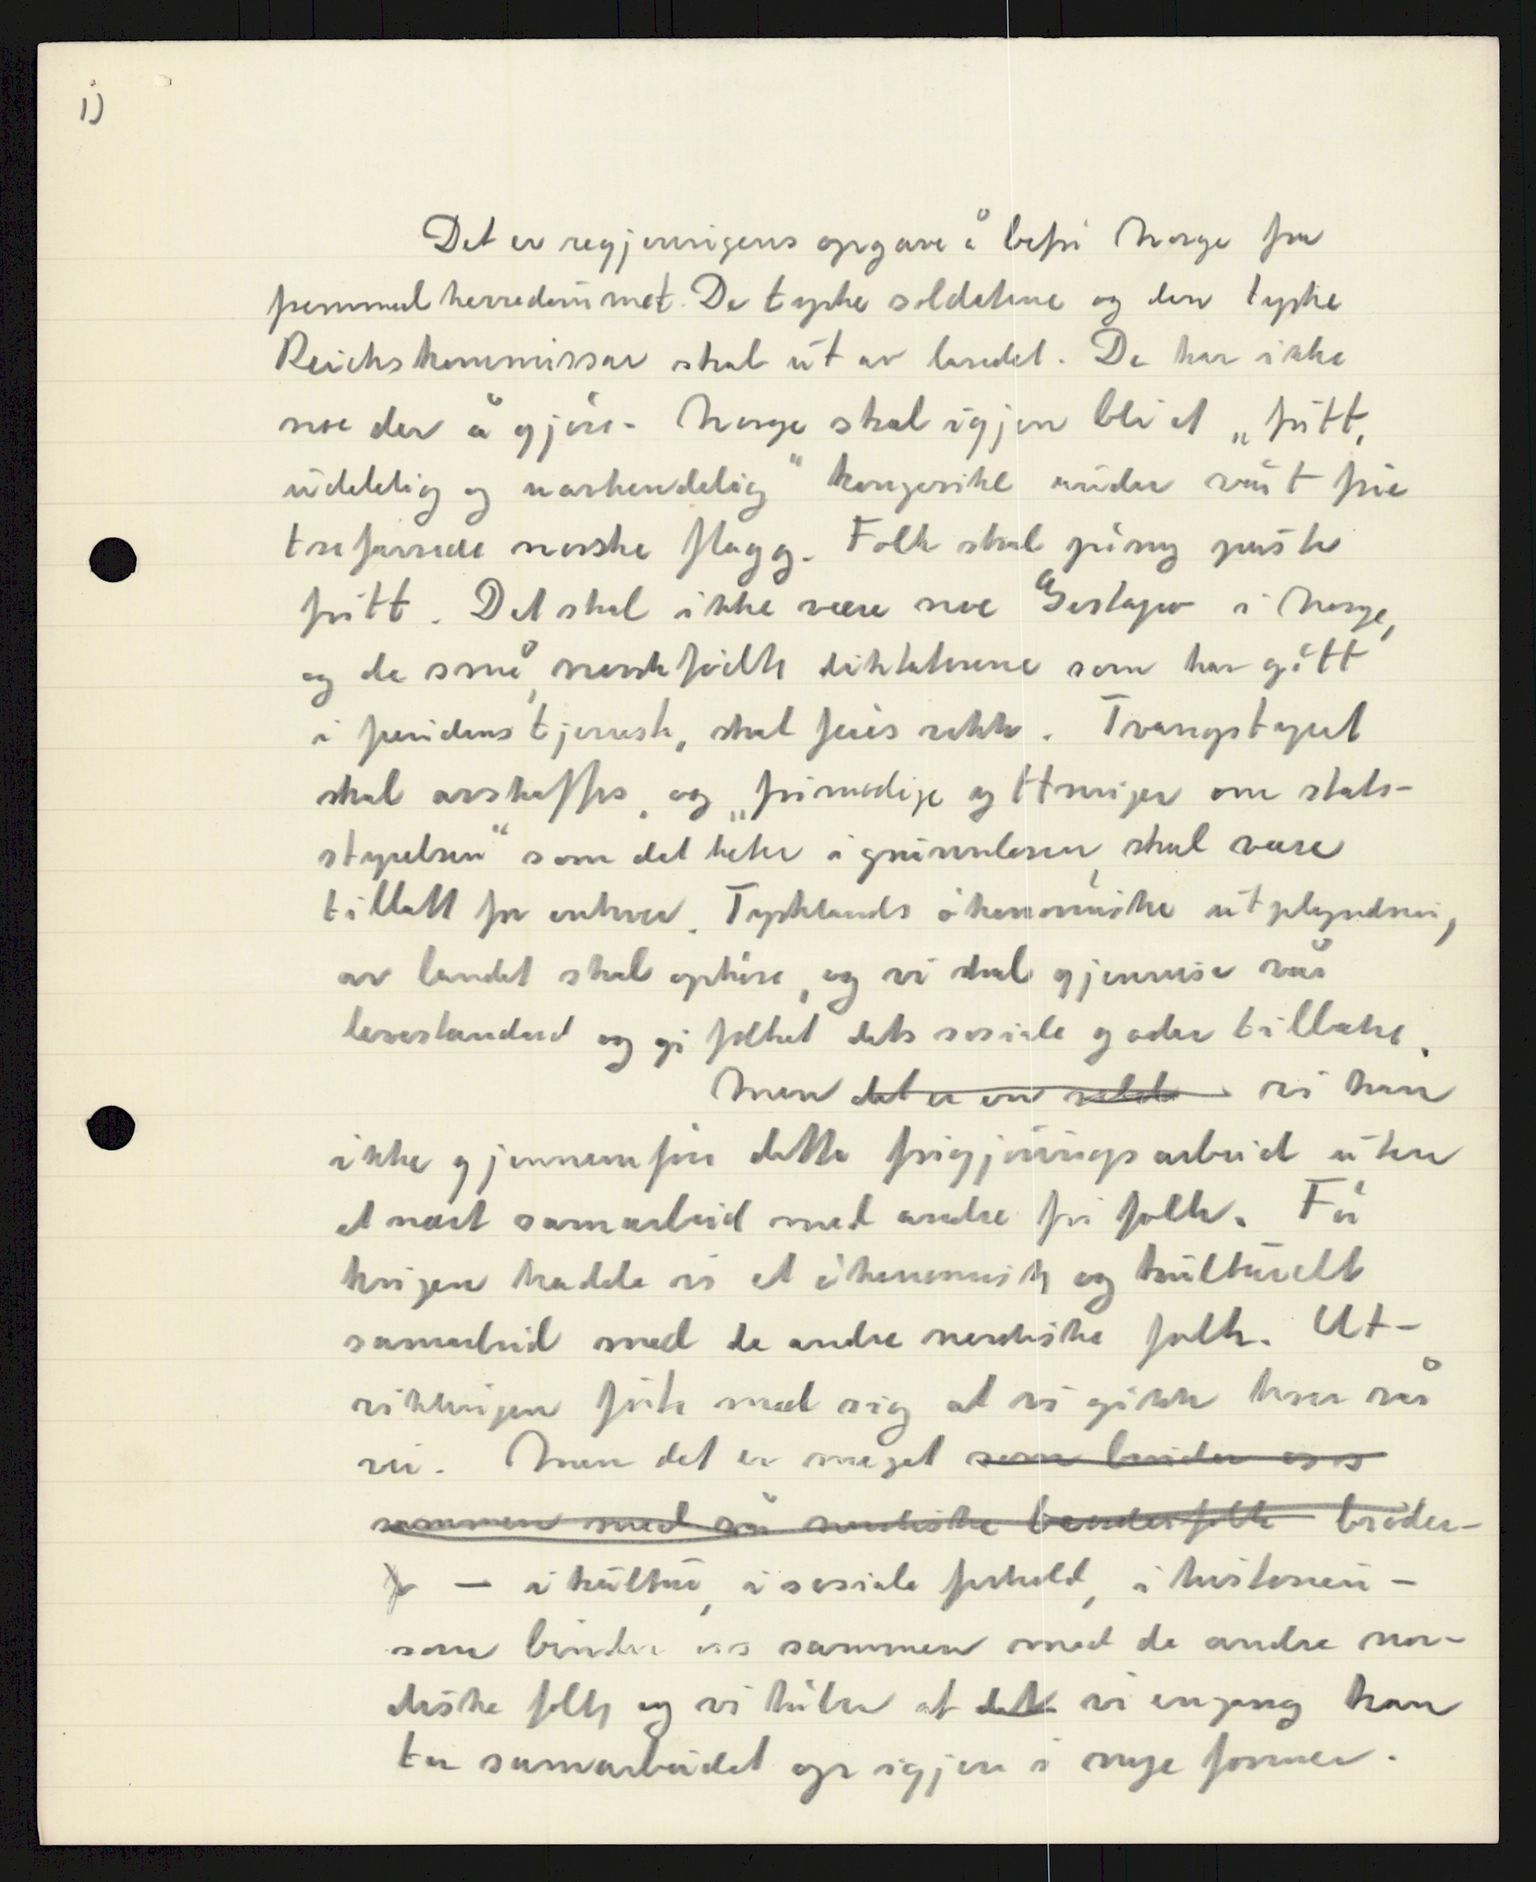 1)
Det er regjeringens opgave å befri Norge fra
fremmedherredømmet. De tyske soldatene og den tyske
Reichskommissar skal ut av landet. De har ikke
noe der å gjøre. Norge skal igjen bli et „fritt,
udelelig og uavhendelig" kongerike under vårt frie
trefarvede norske flagg. Folk skal påny puste
fritt. Det skal ikke være noe Gestapo i Norge,
og de små, norskfødte diktatorene som har gått
i fiendens tjeneste, skal feies vekk. Tvangstyret
skal avskaffes, og „frimodige ytringer om stats-
styrelsen" som det heter i grunnloven, skal være
tillatt for enhver. Tysklands økonomiske utplyndring
av landet skal ophøre, og vi skal gjenreise vår
levestandard og gi folket dets sosiale goder tilbake.
Men det er en vi kan
ikke gjennemføre dette frigjøringsarbeid uten
et nært samarbeid med andre fri folk. Før
krigen hadde vi et økonomisk og kulturelt
samarbeid med de andre nordiske folk. Ut-
viklingen førte med sig at vi gikk hver vår
vei. Men det er meget som binder oss
sammen med våre nordiske broderfolk brøder-
— i kultur, i sosiale forhold, i historien —
som binder oss sammen med de andre nor-
diske folk og vi håber at det vi engang kan
ta samarbeidet opp igjen i nye former.